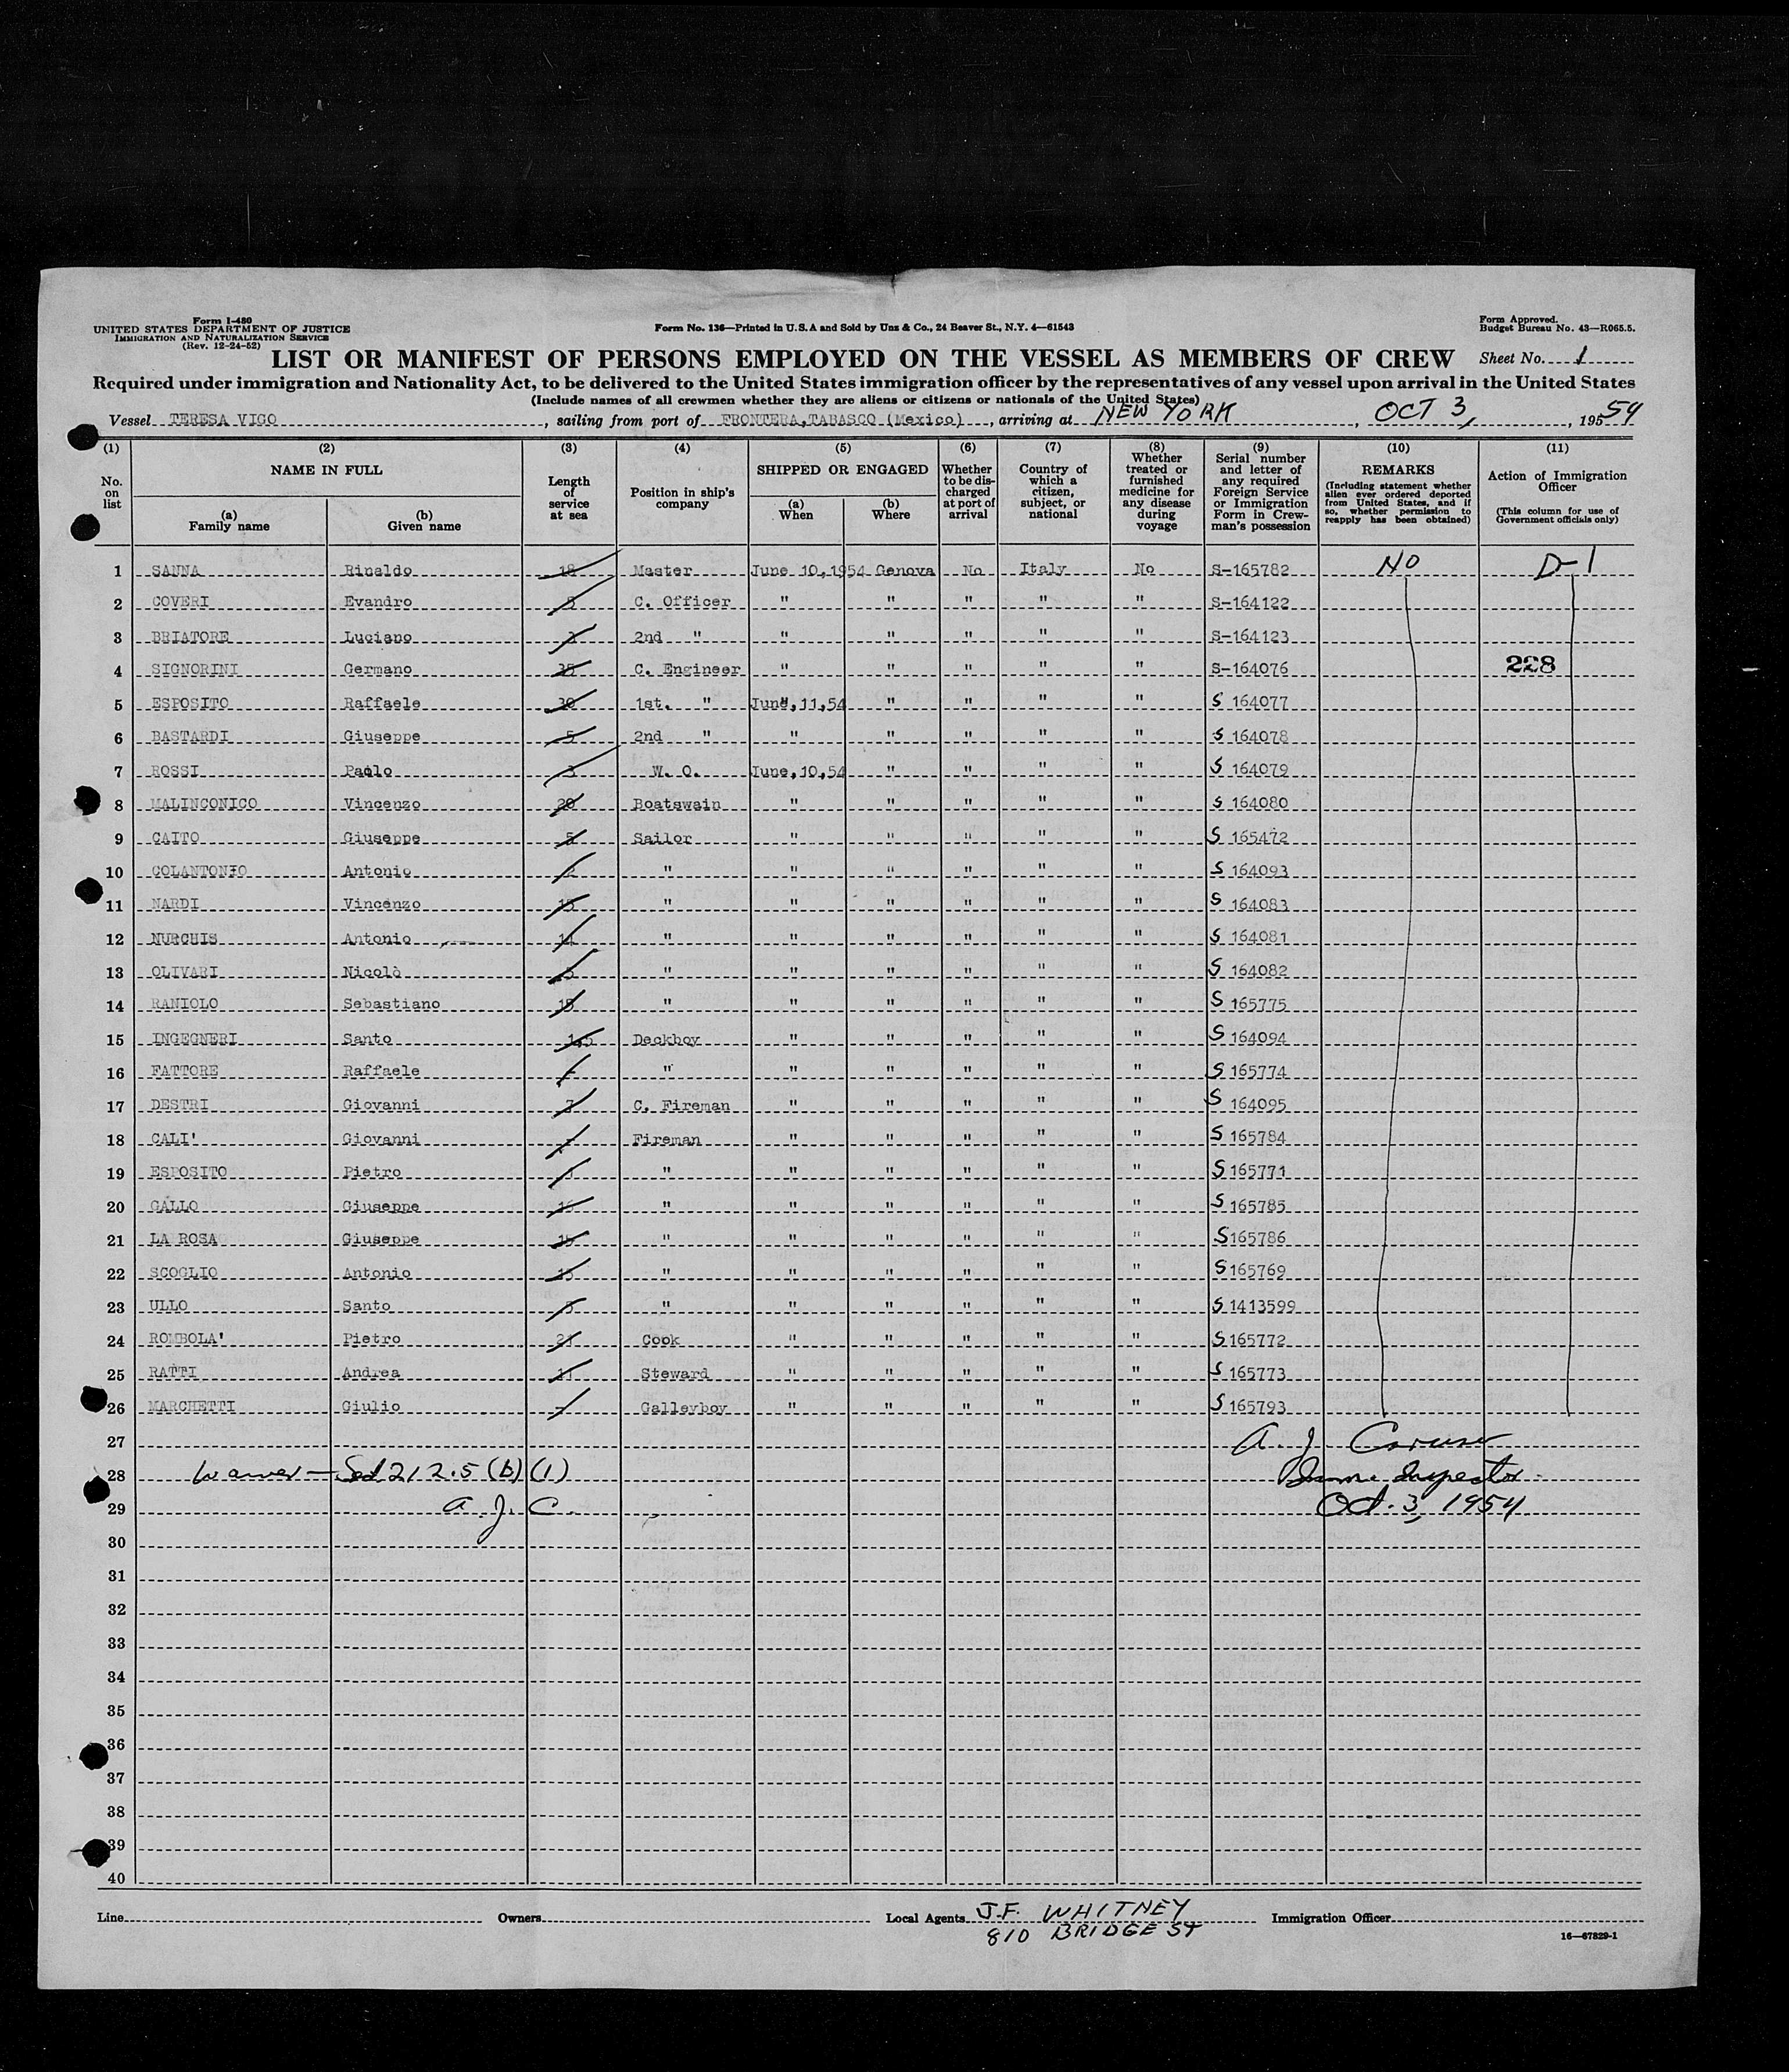 Form I-480
UNITED STATES DEPARTMENT OF JUSTICE
IMMIGRATION AND NATURALIZATION SERVICE
(Rev. 12-24-52)
Form No. 136—Printed in U.S.A and Sold by Unz & Co., 24 Beaver St., N.Y. 4—61543
Form Approved.
Budget Bureau No. 43—R065.5.
LIST OR MANIFEST OF PERSONS EMPLOYED ON THE VESSEL AS MEMBERS OF CREW Sheet No. 1
Required under immigration and Nationality Act, to be delivered to the United States immigration officer by the representatives of any vessel upon arrival in the United States
(Include names of all crewmen whether they are aliens or citizens or nationals of the United States)
Vessel TERESA VIGO, sailing from port of FRONTERA,TABASCO (Mexico), arriving at NEW YORK, OCT 3, 1954
(1) (2) (3) (4) (5) (6) (7) (8) (9) (10) (11)
No. on list
NAME IN FULL
(a) Family name
(b) Given name
Length of service at sea
Position in ship's company
SHIPPED OR ENGAGED
(a) When
(b) Where
Whether to be discharged at port of arrival
Country of which a citizen, subject, or national
Whether treated or furnished medicine for any disease during voyage
Serial number and letter of any required Foreign Service or Immigration Form in Crewman's possession
REMARKS
(Including statement whether alien ever ordered deported from United States, and if so, whether permission to reapply has been obtained)
Action of Immigration Officer
(This column for use of Government officials only)
1 SANNA Rinaldo 18 Master June 10,1954 Genova No Italy No S-165782 NO D-1
2 COVERI Evandro 5 C. Officer " " " " " S-164122
3 BRIATORE Luciano 2nd " " " " " " S-164123
4 SIGNORINI Germano 35 C. Engineer " " " " " S-164076 228
5 ESPOSITO Raffaele 30 1st. " June,11,54 " " " " S 164077
6 BASTARDI Giuseppe 5 2nd " " " " " " S 164078
7 ROSSI Paolo 3 W. O. June,10,54 " " " " S 164079
8 MALINCONICO Vincenzo 20 Boatswain " " " " " S 164080
9 CAITO Giuseppe 5 Sailor " " " " " S 165472
10 COLANTONIO Antonio " " " " " " S 164093
11 NARDI Vincenzo 15 " " " " " " S 164083
12 NURCHIS Antonio 14 " " " " " " S 164081
13 OLIVARI Nicolò " " " " " " S 164082
14 RANIOLO Sebastiano 15 " " " " " " S 165775
15 INGEGNERI Santo 1,5 Deckboy " " " " " S 164094
16 FATTORE Raffaele " " " " " " S 165774
17 DESTRI Giovanni 7 C. Fireman " " " " " S 164095
18 CALI' Giovanni Fireman " " " " " S 165784
19 ESPOSITO Pietro " " " " " " S 165771
20 GALLO Giuseppe 16 " " " " " " S 165785
21 LA ROSA Giuseppe 15 " " " " " " S 165786
22 SCOGLIO Antonio 15 " " " " " " S 165769
23 ULLO Santo " " " " " " S 1413599
24 ROMBOLA' Pietro Cook " " " " " S 165772
25 RATTI Andrea Steward " " " " " S 165773
26 MARCHETTI Giulio - Galleyboy " " " " " S 165793
27 A. J. Caruso
28 Waiver — Sec 212.5 (b) (1) Imm. Inspector
29 A. J. C. Oct. 3, 1954
30
31
32
33
34
35
36
37
38
39
40
Line Owners Local Agents J.F. WHITNEY Immigration Officer
810 BRIDGE ST
16—67829-1